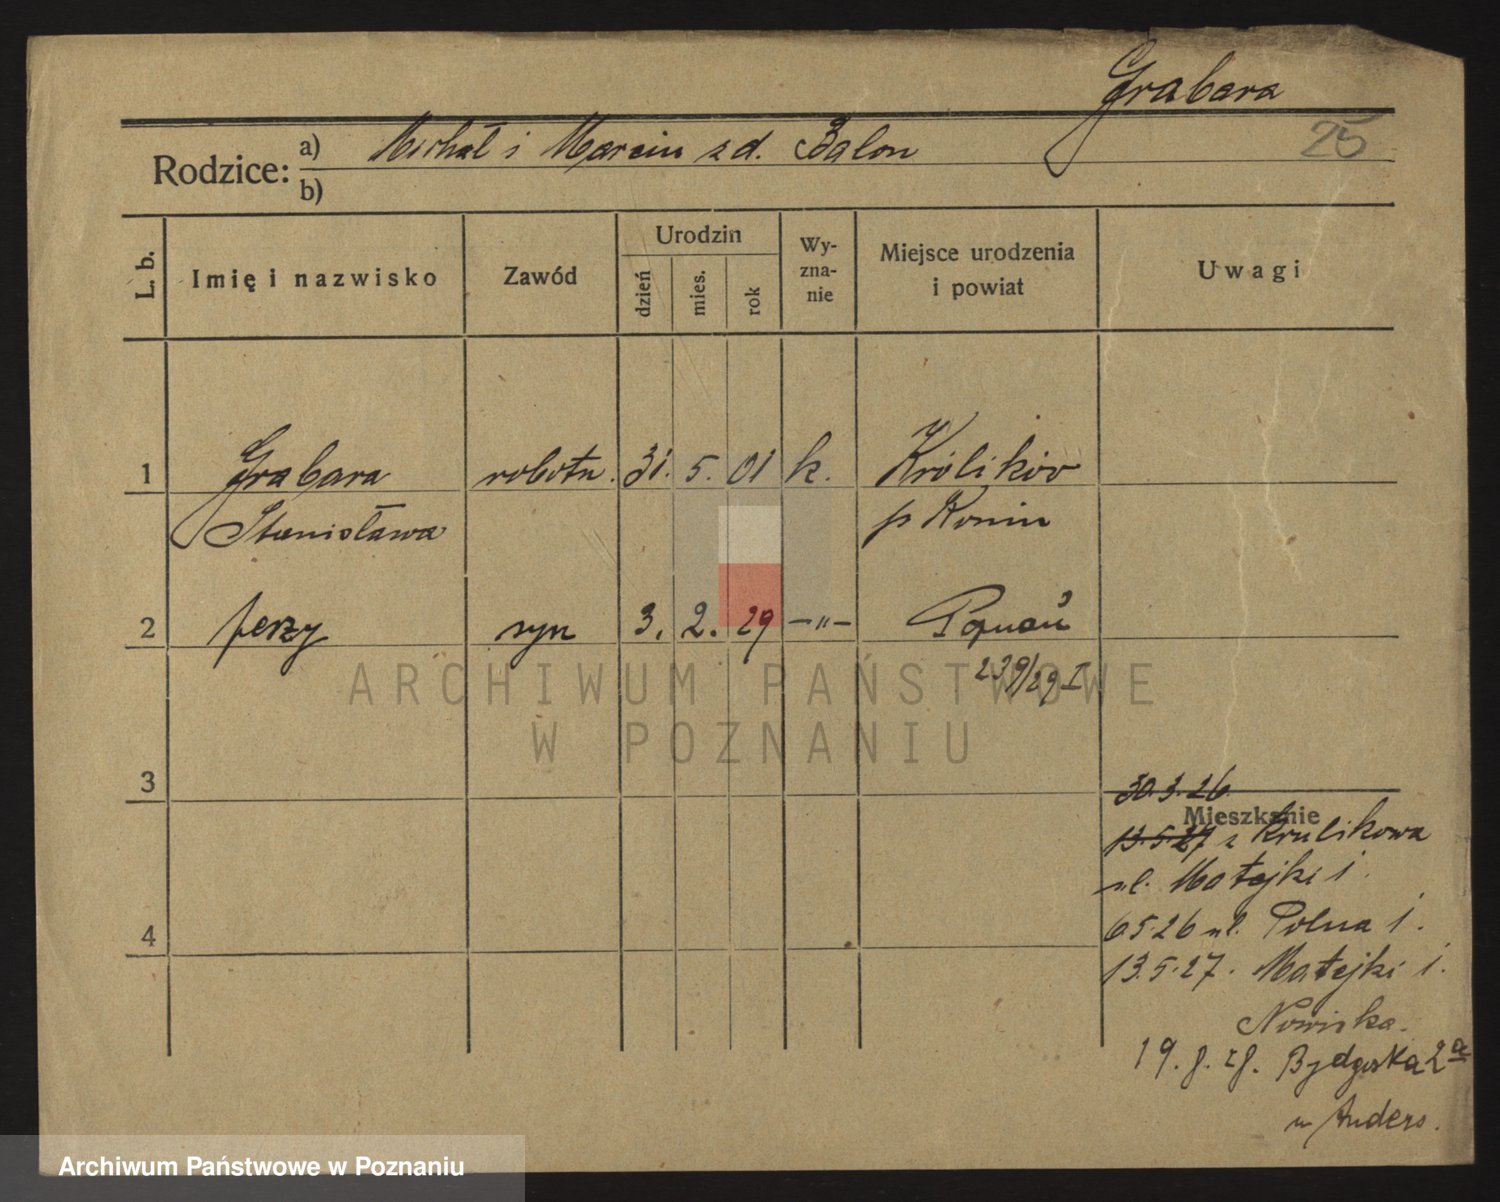 Grabara
25
Rodzice: a) Michał i Marcin z d. Balon
b)
L. b. Imię i nazwisko Zawód Urodzin dzień mies. rok Wy-zna-nie Miejsce urodzenia i powiat Uwagi
1 Grabara robotn. 31. 5. 01 k. Królików
Stanisława p Konin
2 Jerzy syn 3. 2. 29 —"— Poznań
239/29 I
ARCHIWUM PAŃSTWOWE
W POZNANIU
3
30.3.26
Mieszkanie
13.5.27 z Krulikowa
ul. Matejki 1.
6 5 26 ul. Polna 1.
4
13.5.27. Matejki 1.
Nowiska.
19. 8. 28. Bydgoska 2a
u Anders.
Archiwum Państwowe w Poznaniu